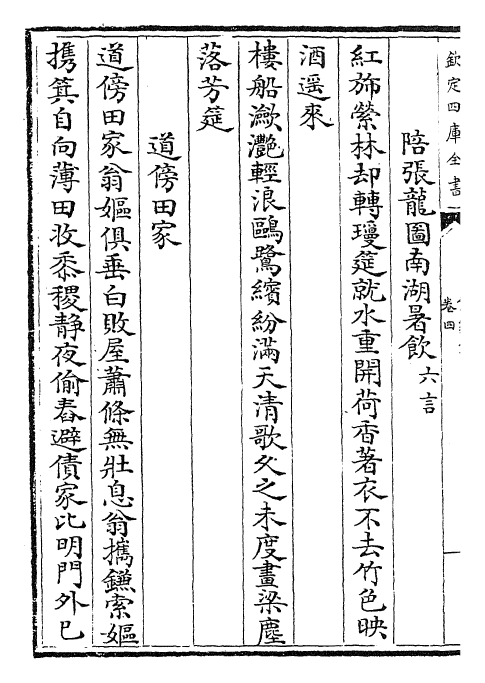 欽定四庫全書
卷四
陪張龍圖南湖暑飲六言
紅斾縈林却轉瓊筵就水重開荷香著衣不去竹色映
酒遥來
樓船瀲灩輕浪鷗鷺繽紛滿天清歌久之未度畫梁塵
落芳筵
道傍田家
道傍田家翁嫗俱垂白敗屋蕭條無壯息翁攜鎌索嫗
携箕自向薄田收黍稷靜夜偷舂避債家比明門外已